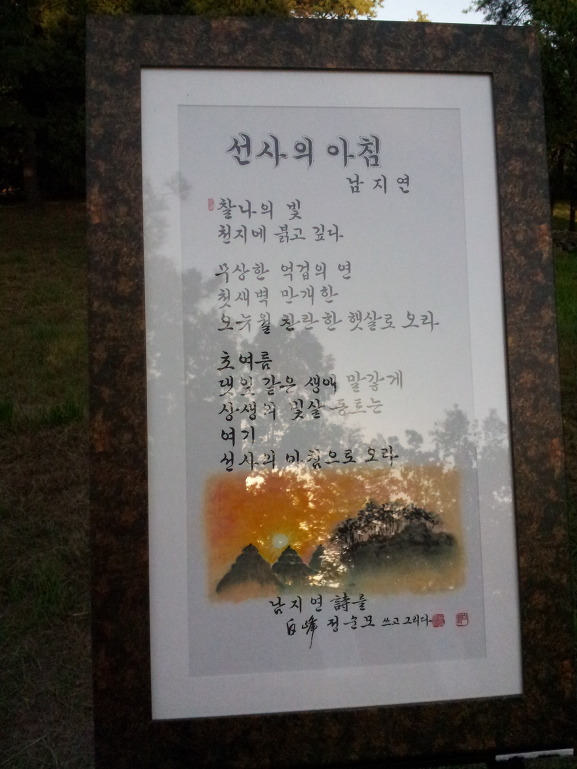 선사의 아침
남지연
찰나의 빛
천지에 붉고 깊다
무상한 억겁의 연
첫새벽 만개한
오뉴월 찬란한 햇살로 오라
초여름
댓잎 같은 생애 말갛게
상생의 빛살 동트는
여기
선사의 아침으로 오라
남지연 詩를
白峰 정순모 쓰고 그리다